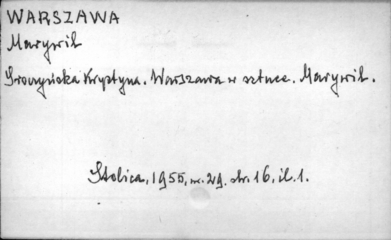 WARSZAWA
Marywil
Sroczyńska Krystyna. Warszawa w sztuce. Marywil.
Stolica, 1955, nr. 29. str. 16, il. 1.